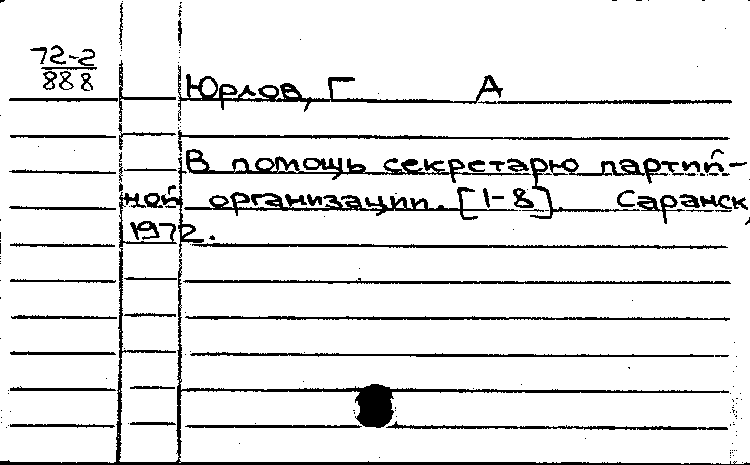 72-2
888
Юрлов, Г А
В помощь секретарю партий-
ной организации. [1-8]. Саранск,
1972.